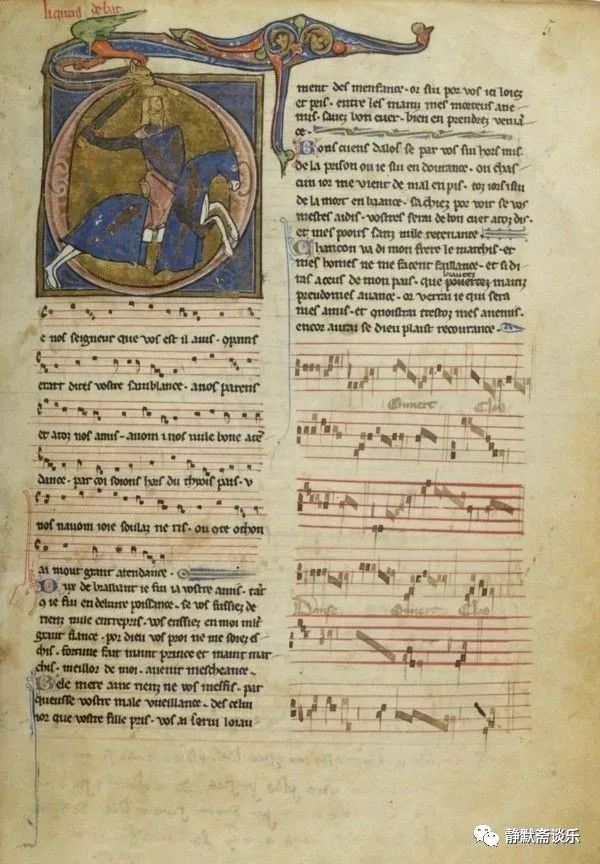 li quens de bar
e nos seigneur que vos est il auis
et arz dites vostre samblance · a nos parens
et a toz nos amis · auom i nos nule bone atē
dance · par coi soions hors du thyois pais · v
nos nauom ioie soulaz ne ris · ou 9te othon
ai mout grant atendance ·
Dux de braibant ie fui ia vostre amis · tāt
9 ie fui en deliure poissance · se vos fussiez de
rienz nule entrepris · vos eussiez en moi mlt
grant fiance · por dieu vos proi ne me soiez es
chis · fortune fait maint prince et maint mar
chis · meillor de moi · auenir mescheance ·
Bele mere ainc rienz ne vos mesfis · par
queusse vostre male vueillance · des celui
ior que vostre fille pris · vos ai serui loiau
ment des menfance · or sui por vos ici loiez
et pris · entre les mainz mes morteus ane
mis · sauez bon cuer · bien en prendrez veniā
ce ·
Bons cuens dalos se par vos sui hors mis
de la prison ou ie sui en doutance · ou chas
cun ior me vient de mal en pis · toz iors i sui
de la mort en baance · sachiez por voir se vos
mestes aidis · vostres serai de bon cuer a toz dis ·
et mes pooirs sanz nule retenance ·
Chancon va di mon frere le marchis · et
mes homes ne me facent faillance · et si di
ras a ceus de mon pais · que pouertez mainz
preudomes auance · or verrai ie qui sera
mes amis · et quoistrai trestoz mes anemis ·
encor aurai se dieu plaist recourance ·
Ouuert Clos
Danse Ouuert Clos
静默斋谈乐